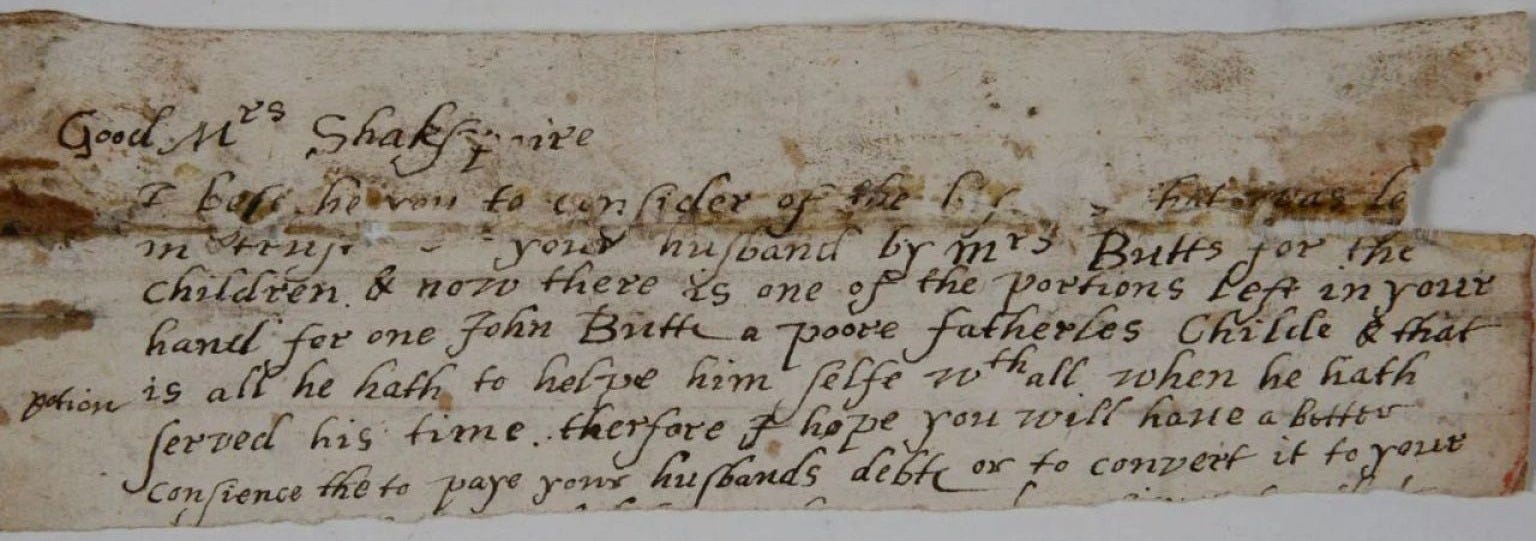 Good Mrs Shakspaire
I bese he you to consider of the that was le
in trust your husband by mrs Butts for the
Children. & now there is one of the portions left in your
hand for one John Butts a poore fatherles Childe & that
is all he hath to helpe him selfe wth all when he hath
potion
served his time. therfore I hope you will have a better
Consience the to paye your husbands debts or to convert it to your